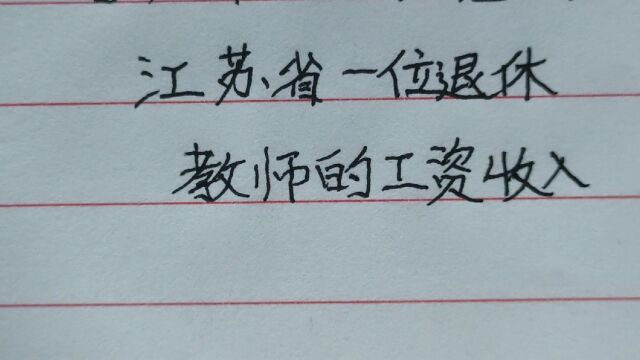 江苏省一位退休
教师的工资收入